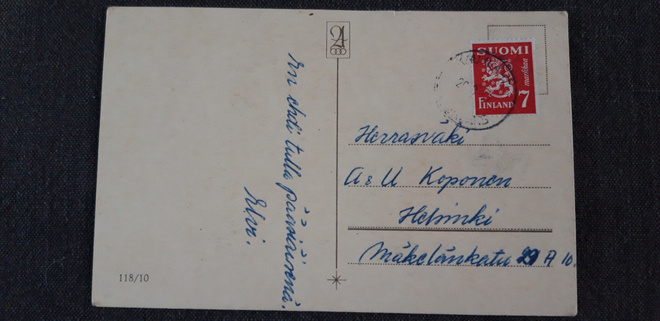 En ehdi tulla pääsiäisenä.
Elvi.
SUOMI
markkaa
FINLAND 7
Herrasväki
A & U Koponen
Helsinki
Mäkelänkatu 29 A 10.
118/10